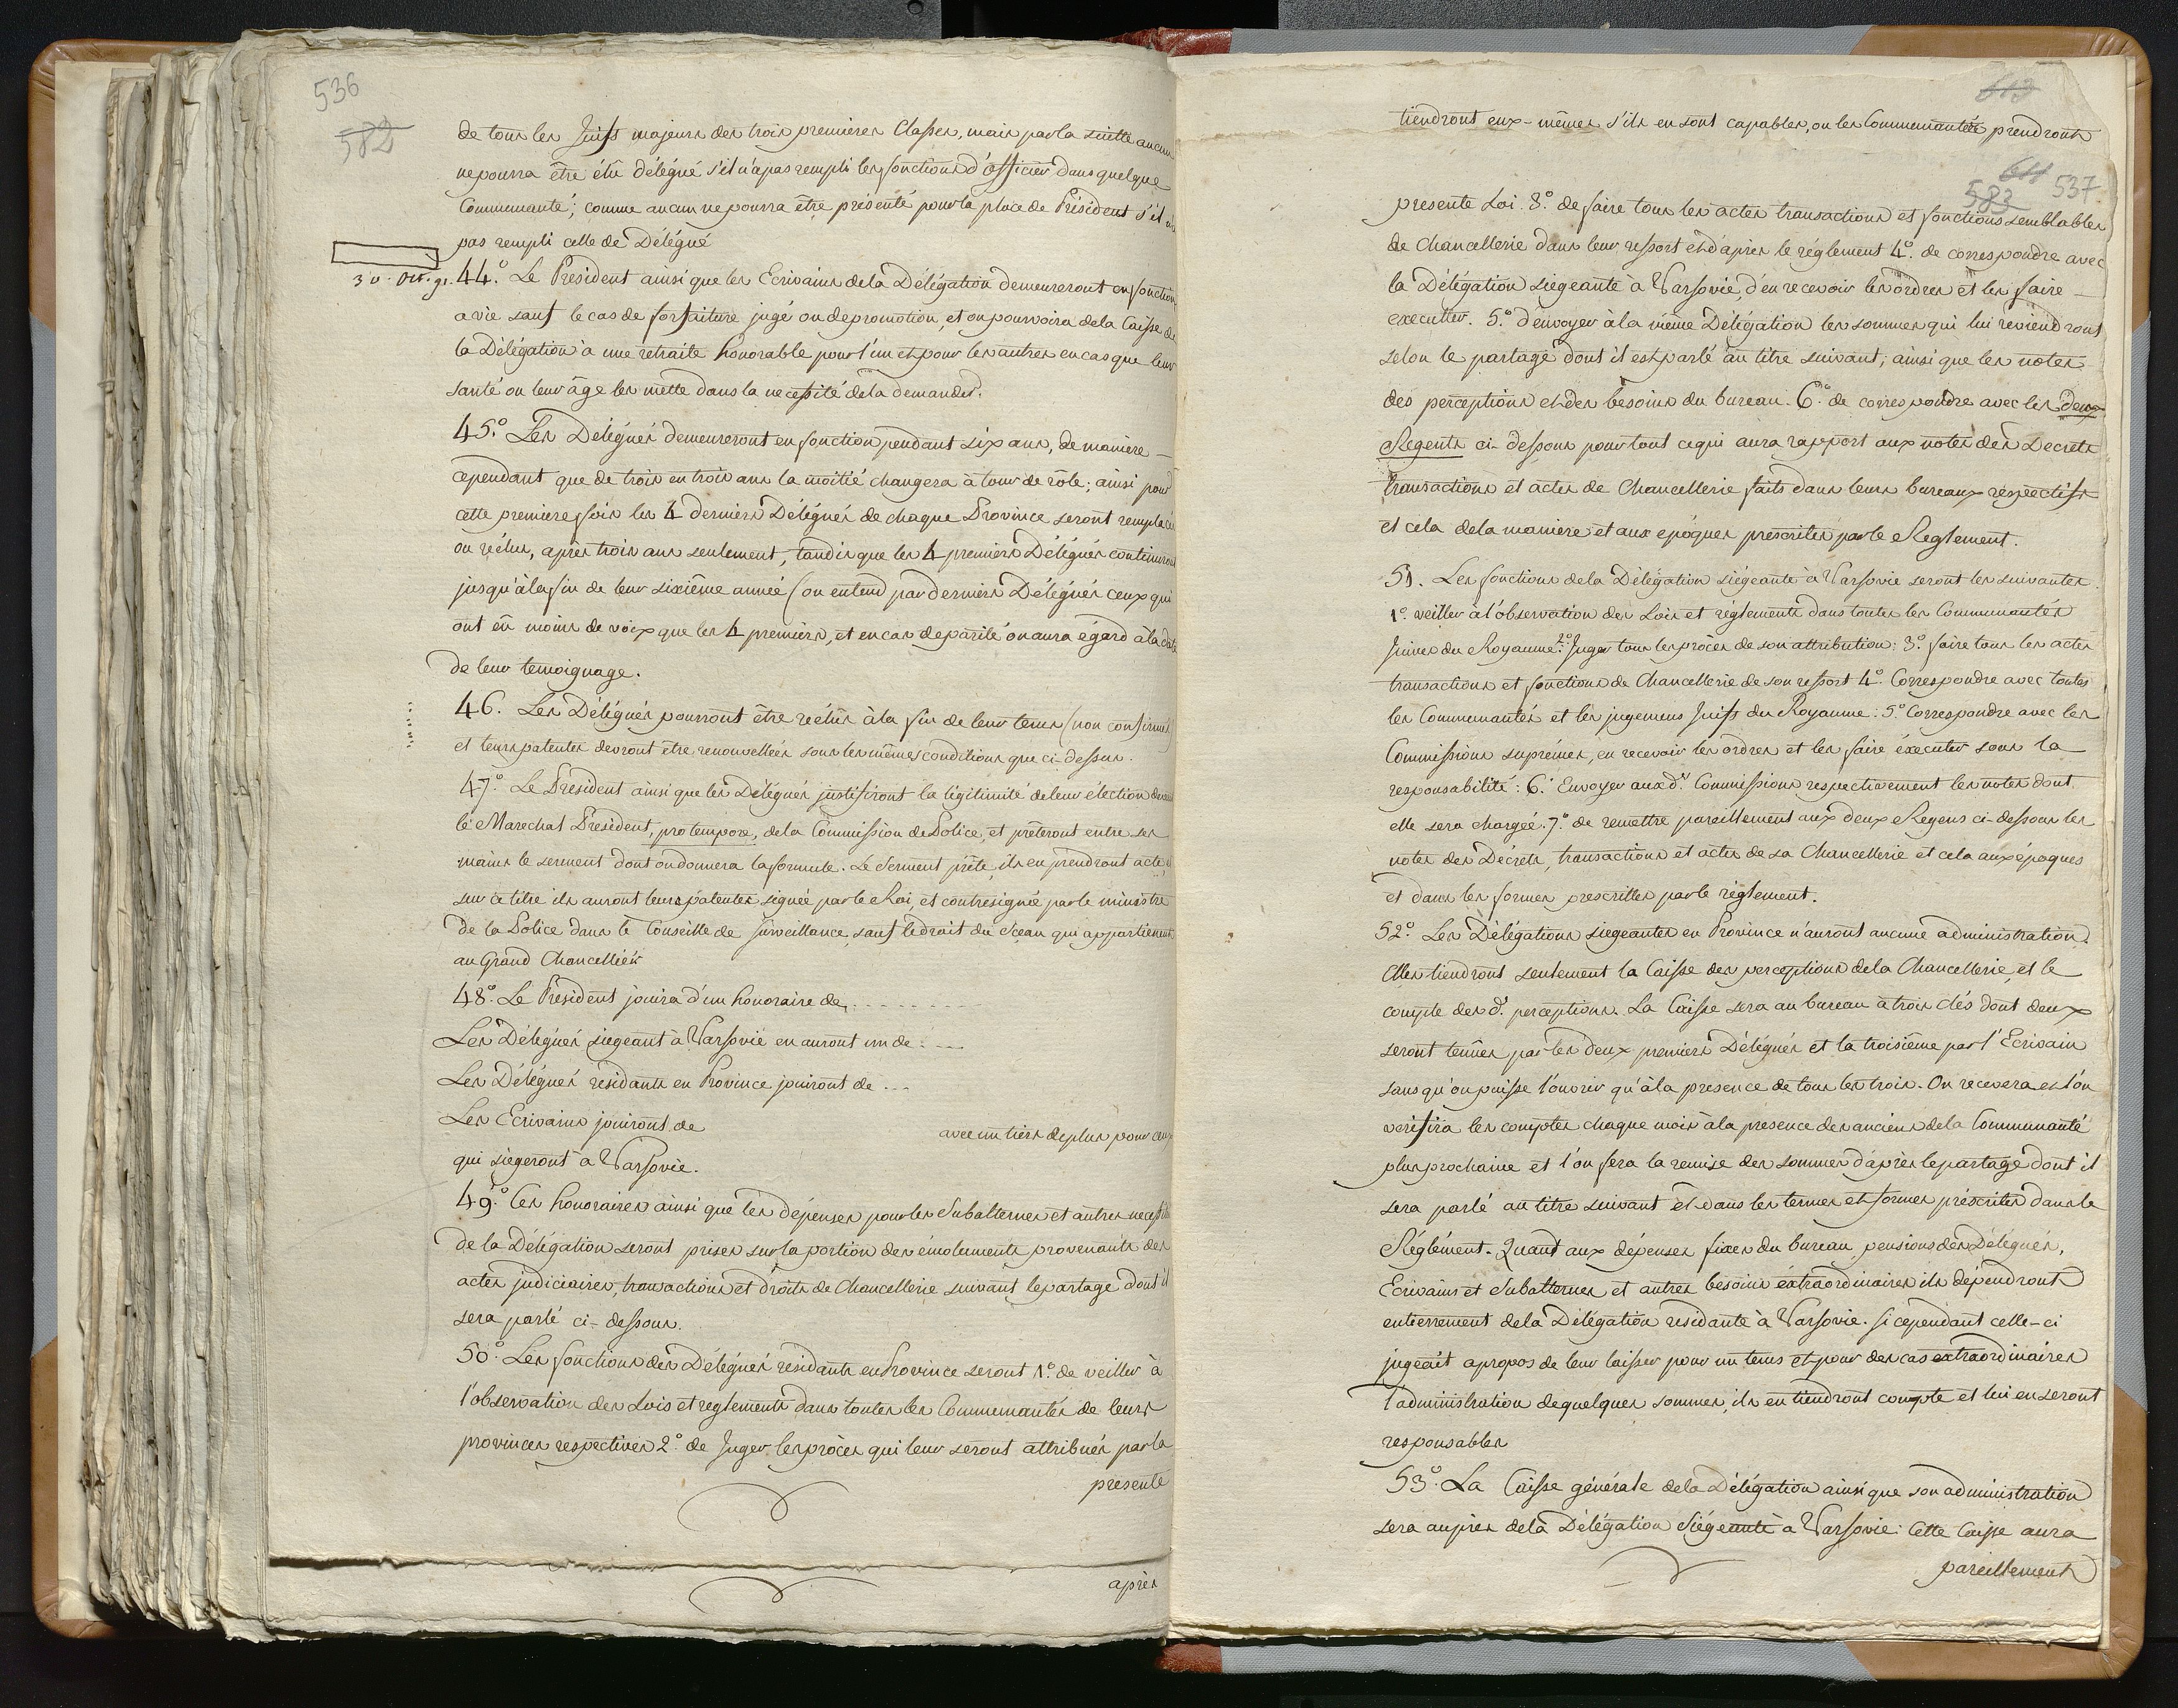 536
582
de tous les Juifs majeurs des trois premieres Classes, mais par la suitte aucun
ne pourra être élu délégué s'il n'a pas rempli les fonctions d'officier dans quelque
Communauté; comme aucun ne pourra être présenté pour la place de Président s'il n'a
pas rempli celle de Délégué
44.° Le President ainsi que les Ecrivains de la Délégation demeureront en fonction
a vie sauf le cas de forfaiture jugé ou de promotion, et on pourvoira de la Caisse de
la Délégation à une retraite honorable pour l'un et pour les autres en cas que leur
santé ou leur âge les mette dans la necessité de la demander.
45.° Les Délégués demeureront en fonction pendant six ans, de maniere —
cependant que de trois en trois ans la moitié changera à tour de rôle; ainsi pour
cette premiere fois les 4 derniers Délégués de chaque Province seront remplacés
ou réélus, après trois ans seulement, tandis que les 4 premiers Délégués continueront
jusqu'à la fin de leur sixième année (on entend par derniers Délégués ceux qui
ont eû moins de voix que les 4 premiers, et en cas de parité on aura égard à la date
de leur temoignage.
46. Les Délégués pourront être réélus à la fin de leur tems (non confirmés)
et leurs patentes devront être renouvellées sous les mêmes conditions que ci-dessus.
47.° Le President ainsi que les Délégués justifiront la légitimité de leur élection devant
le Marechal President, pro tempore, de la Commission de Police, et prêteront entre ses
mains le serment dont on donnera la formule. Le Serment prêté, ils en prendront acte,
sur ce titre ils auront leurs patentes signée par le Roi, et contresignée par le ministre
de la Police dans le Conseille de surveillance, sauf le droit du Sçeau qui appartienent
au Grand Chancelliér
48.° Le President jouira d'un honoraire de . . . . . . . . .
Les Délégués siegeant à Varsovie en auront un de . . . .
Les Délégués résidants en Province jouiront de . . .
Les Ecrivains jouiront de avec un tiers de plus pour ceux
qui siegeront à Varsovie.
49.° Ces honoraires ainsi que les dépenses pour les Subalternes et autres necessités
de la Délégation seront prises sur la portion des émoluments provenants des
actes judiciaires, transactions et droits de Chancellerie suivant le partage dont il
sera parlé ci-dessous.
50.° Les fonctions des Délégués residants en Province seront 1.° de veiller à
l'observation des Lois et reglements dans toutes les Communautés de leurs
provinces respectives 2.° de Juger les procès qui leur seront attribués par la
presente
après
613
tiendront eux-mêmes s'ils en sont capables, ou les Communautés prendront
611
583 537
presente Loi. 3.° de faire tous les actes transactions et fonctions semblables
de Chancellerie dans leur ressort et d'après le réglement 4.° de correspondre avec
la Délégation siegeante à Varsovie, d'en recevoir les ordres et les faire —
executter. 5.° d'envoyer à la même Délégation les sommes qui lui reviendront
selon le partage dont il est parlé au titre suivant; ainsi que les notes
des perceptions et des besoins du bureau. 6.° de correspondre avec les deux
Regents ci-dessous pour tout ce qui aura rapport aux notes des Decrets
transactions et actes de Chancellerie faits dans leurs bureaux respectifs
et cela de la maniere et aux epoques prescrites par le Reglement.
51. Les fonctions de la Délégation siégeante à Varsovie seront les suivantes
1.° veiller à l'observation des Lois et réglements dans toutes les Communautés
Juives du Royaume: 2.° Juger tous les procès de son attribution: 3.° faire tous les actes
transactions et fonctions de Chancellerie de son ressort 4.° Correspondre avec toutes
les Communautés et les jugemens Juifs du Royaume: 5.° Correspondre avec les
Commissions suprêmes, en recevoir les ordres et les faire éxecuter sous la
responsabilité: 6.° Envoyer aux d.s Commissions respectivement les notes dont
elle sera chargée. 7.° de remettre pareillement aux deux Regens ci-dessous les
notes des Décrets, transactions et actes de sa Chancellerie et cela aux époques
et dans les formes prescrittes par le réglement.
52.° Les Délégations siegeantes en Province n'auront aucune administration.
elles tiendront seulement la Caisse des perceptions de la Chancellerie, et le
compte des d.s perceptions. La Caisse sera au bureau à trois clés dont deux
seront tenües par les deux premiers Délégués et la troisième par l'Ecrivain
sans qu'on puisse l'ouvrir qu'à la presence de tous les trois. On recevera et l'on
verifira les comptes chaque mois à la presence des anciens de la Communauté
plus prochaine et l'on fera la remise des sommes d'après le partage dont il
sera parlé au titre suivant et dans les termes et formes préscrites dans le
Réglement. Quant aux dépenses fixes du bureau, pensions des Délégués,
Ecrivains et Subalternes et autres besoins extraordinaires ils dépendront
entierrement de la Délégation residante à Varsovie. si cependant celle-ci
jugeait apropos de leur laisser pour un tems et pour des cas extraordinaires
l'administration de quelques sommes, ils en tiendront compte et lui en seront
responsables
53.° La Caisse générale de la Délégation ainsi que son administration
sera auprès de la Délégation Siégeante à Varsovie: Cette Caisse aura
pareillement